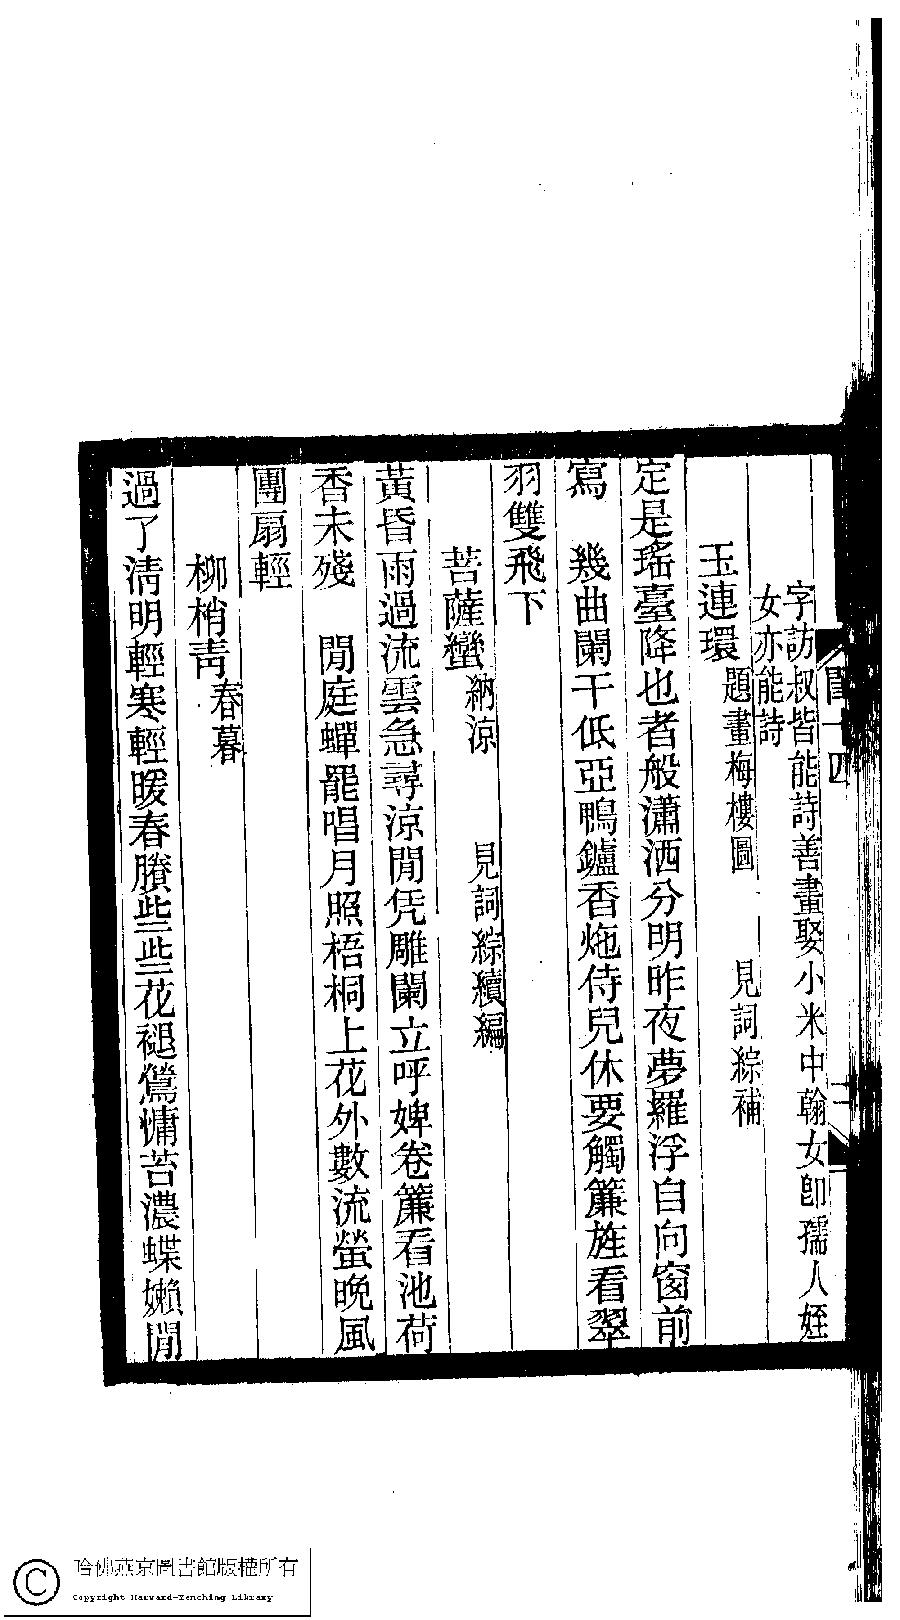 字訪叔皆能詩善畫娶小米中翰女卽孺人姪
女亦能詩
玉連環題畫梅樓圖　見詞綜補
定是瑤臺降也者般瀟洒分明昨夜夢羅浮自向窗前
寫　幾曲闌干低亞鴨鑪香灺侍兒休要觸簾旌看翠
羽雙飛下
菩薩蠻納涼　見詞綜續編
黃昏雨過流雲急尋涼閒凭雕闌立呼婢卷簾看池荷
香未殘　閒庭蟬罷唱月照梧桐上花外數流螢晚風
團扇輕
柳梢靑春暮
過了淸明輕寒輕暖春賸些些花褪鶯慵苔濃蝶嬾閒
哈佛燕京圖書館版權所有
Copyright Harvard-Yenching Library